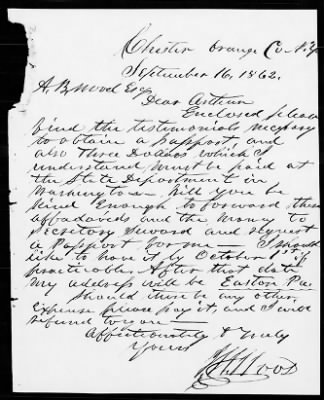 Chester Orange Co. N.Y.
September 16, 1862.
A. B. Wood Esq
Dear Arthur
Enclosed please
find the testimonials necessary
to obtain a passport and
also three Dollars which I
understand must be paid at
the State Department in
Washington — Will you be
kind enough to forward these
affadavids and the money to
Secretary Seward and request
a Passport for me — I should
like to have it by October 1st if
practicable. After that date
my address will be Easton Pa
Should there be any other
expense please pay it, and I will
refund to you —
Affectionately & truly
Yours
Wood